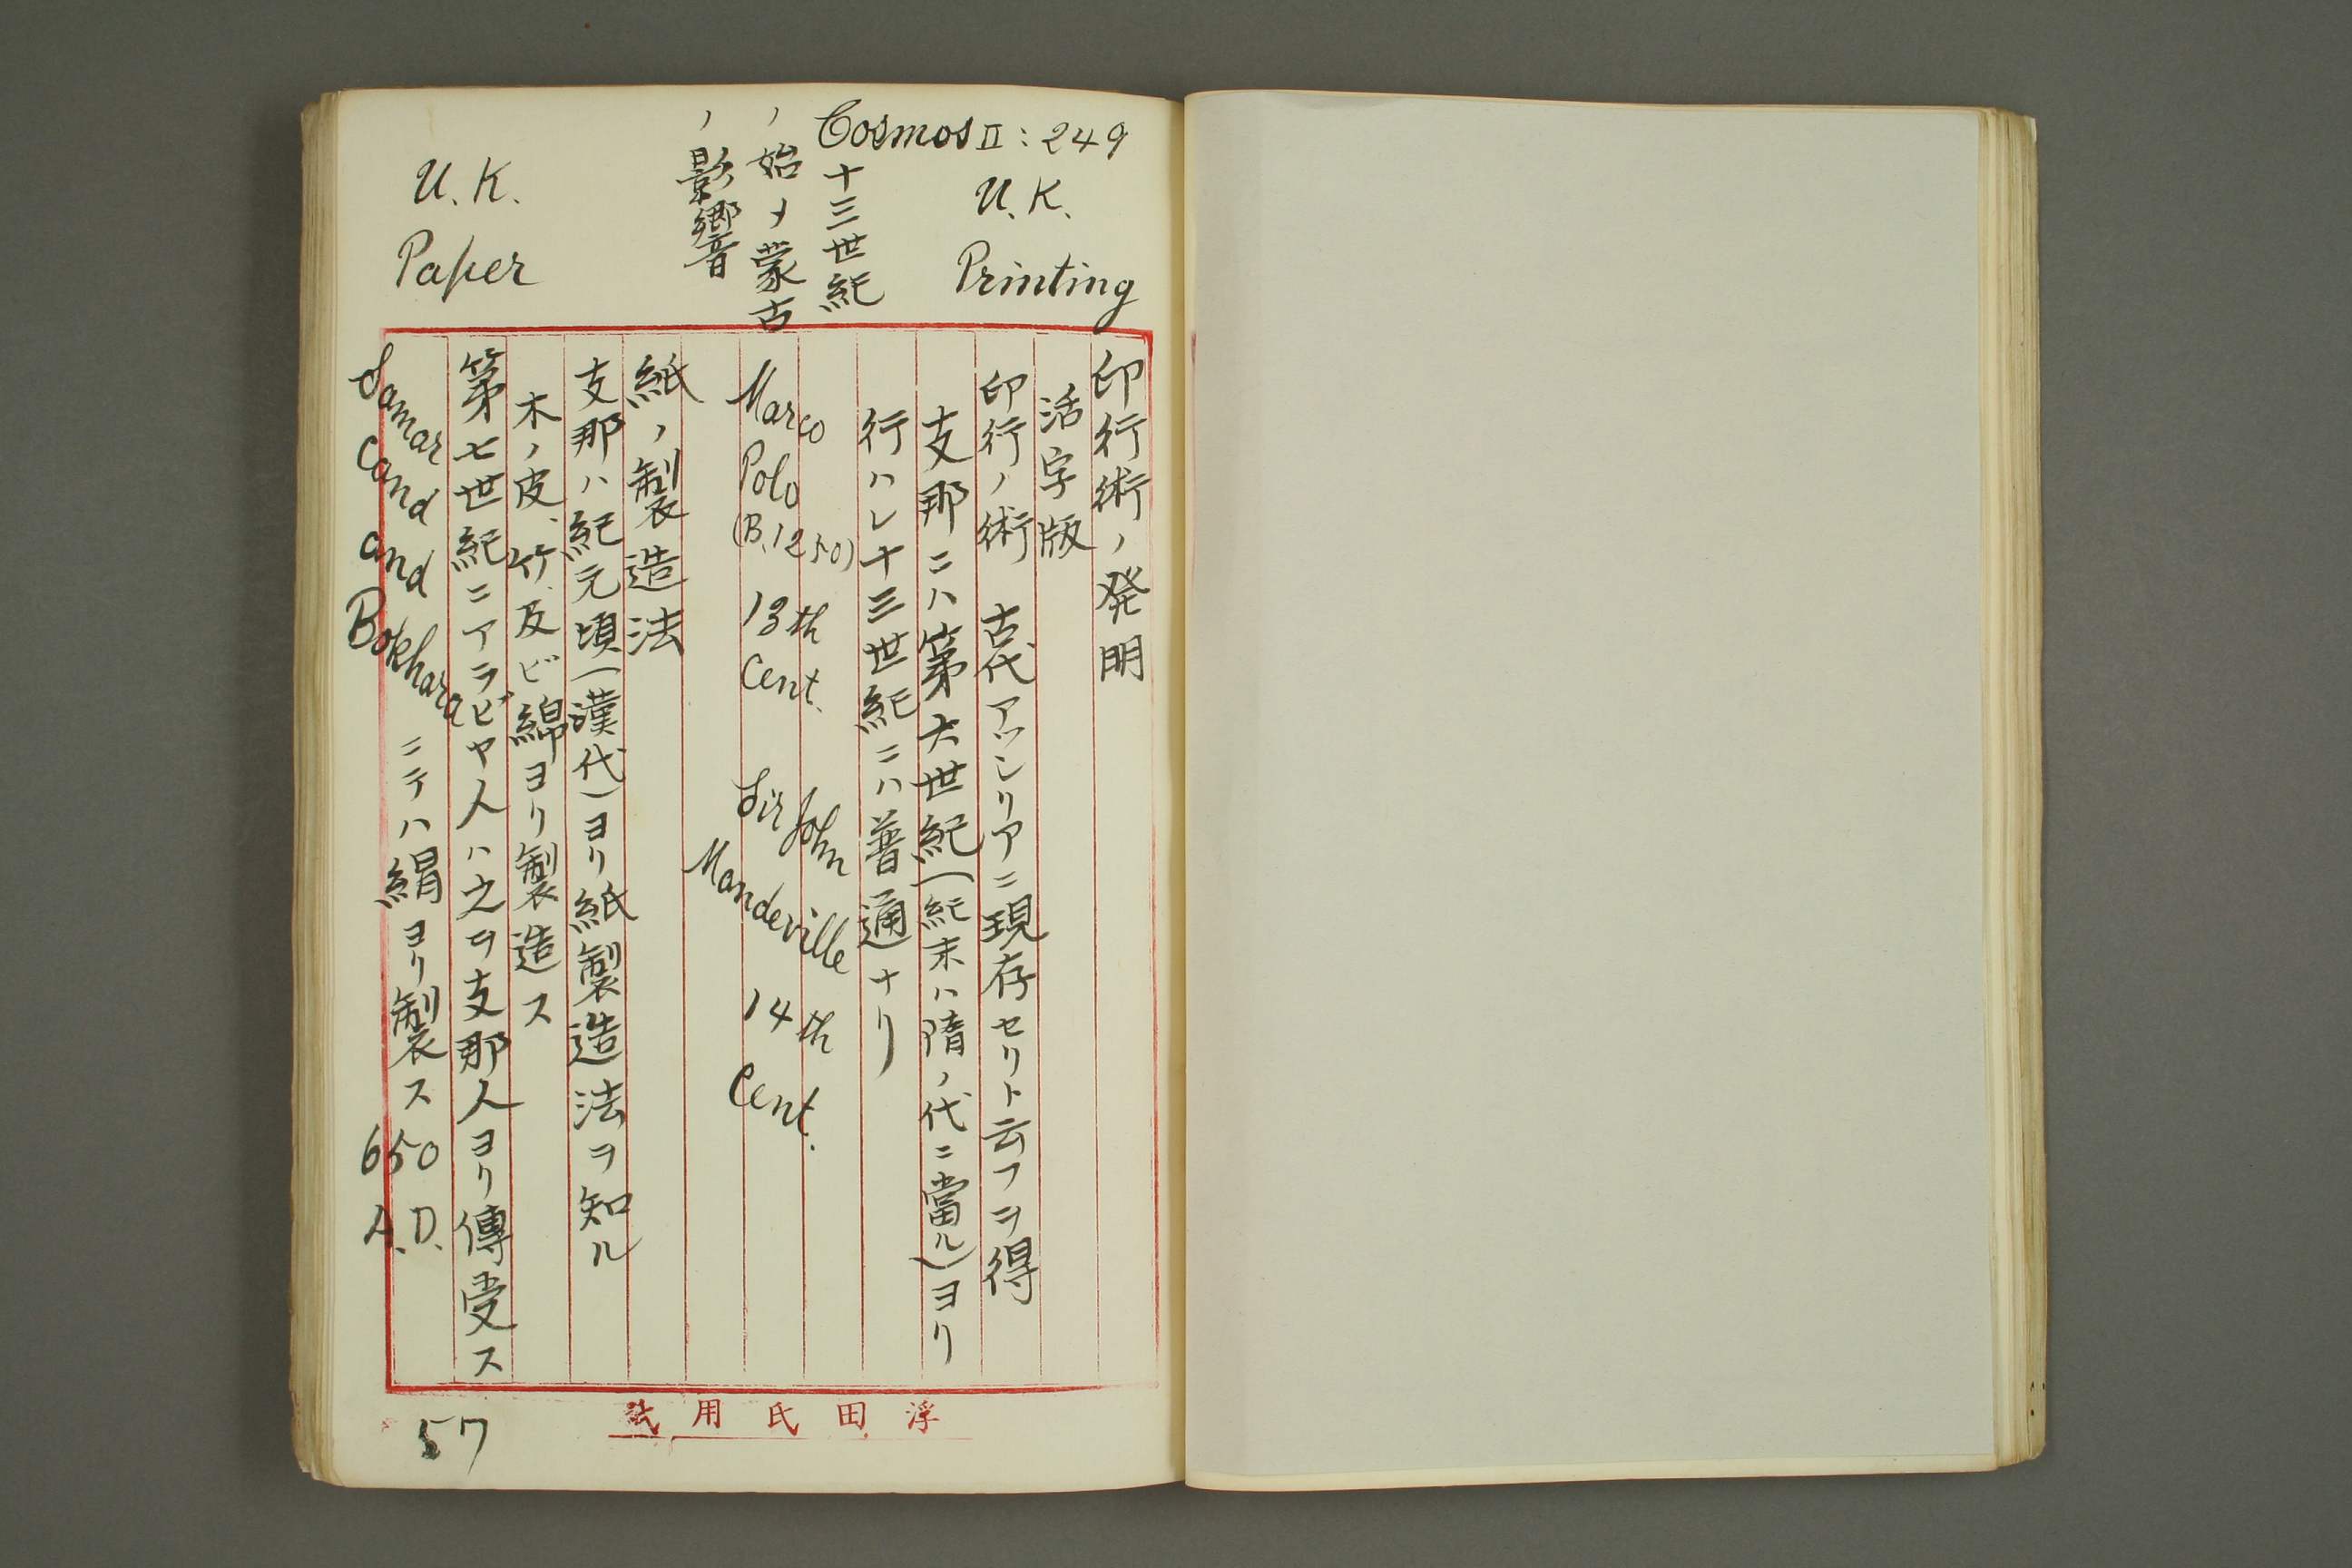 Cosmos II: 249
U.K.
Printing
十三世紀
ノ始メ蒙古
ノ影響
U.K.
Paper
印行術ノ発明
活字版
印行ノ術 古代アッシリアニ現存セリト云フヲ得
支那ニハ第六世紀(紀末ハ隋ノ代ニ當ル)ヨリ
行ハレ十三世紀ニハ普通ナリ
Marco Polo (B. 1250) 13th Cent. Sir John Mandeville 14th Cent.
紙ノ製造法
支那ハ紀元頃(漢代)ヨリ紙製造法ヲ知ル
木ノ皮、竹、及ビ綿ヨリ製造ス
第七世紀ニアラビヤ人ハ之ヲ支那人ヨリ傳受ス
Samarcand and Bokhara ニテハ絹ヨリ製ス 650 A.D.
浮田氏用紙
57